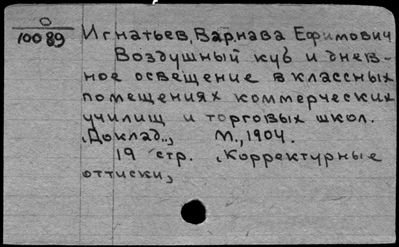 О
10089
Игнатьев, Варнава Ефимович
Воздушный куб и днев-
ное освещение в классных
помещениях коммерческих
училищ и торговых школ.
"Доклад", М., 1904.
19 стр. "Корректурные
оттиски"